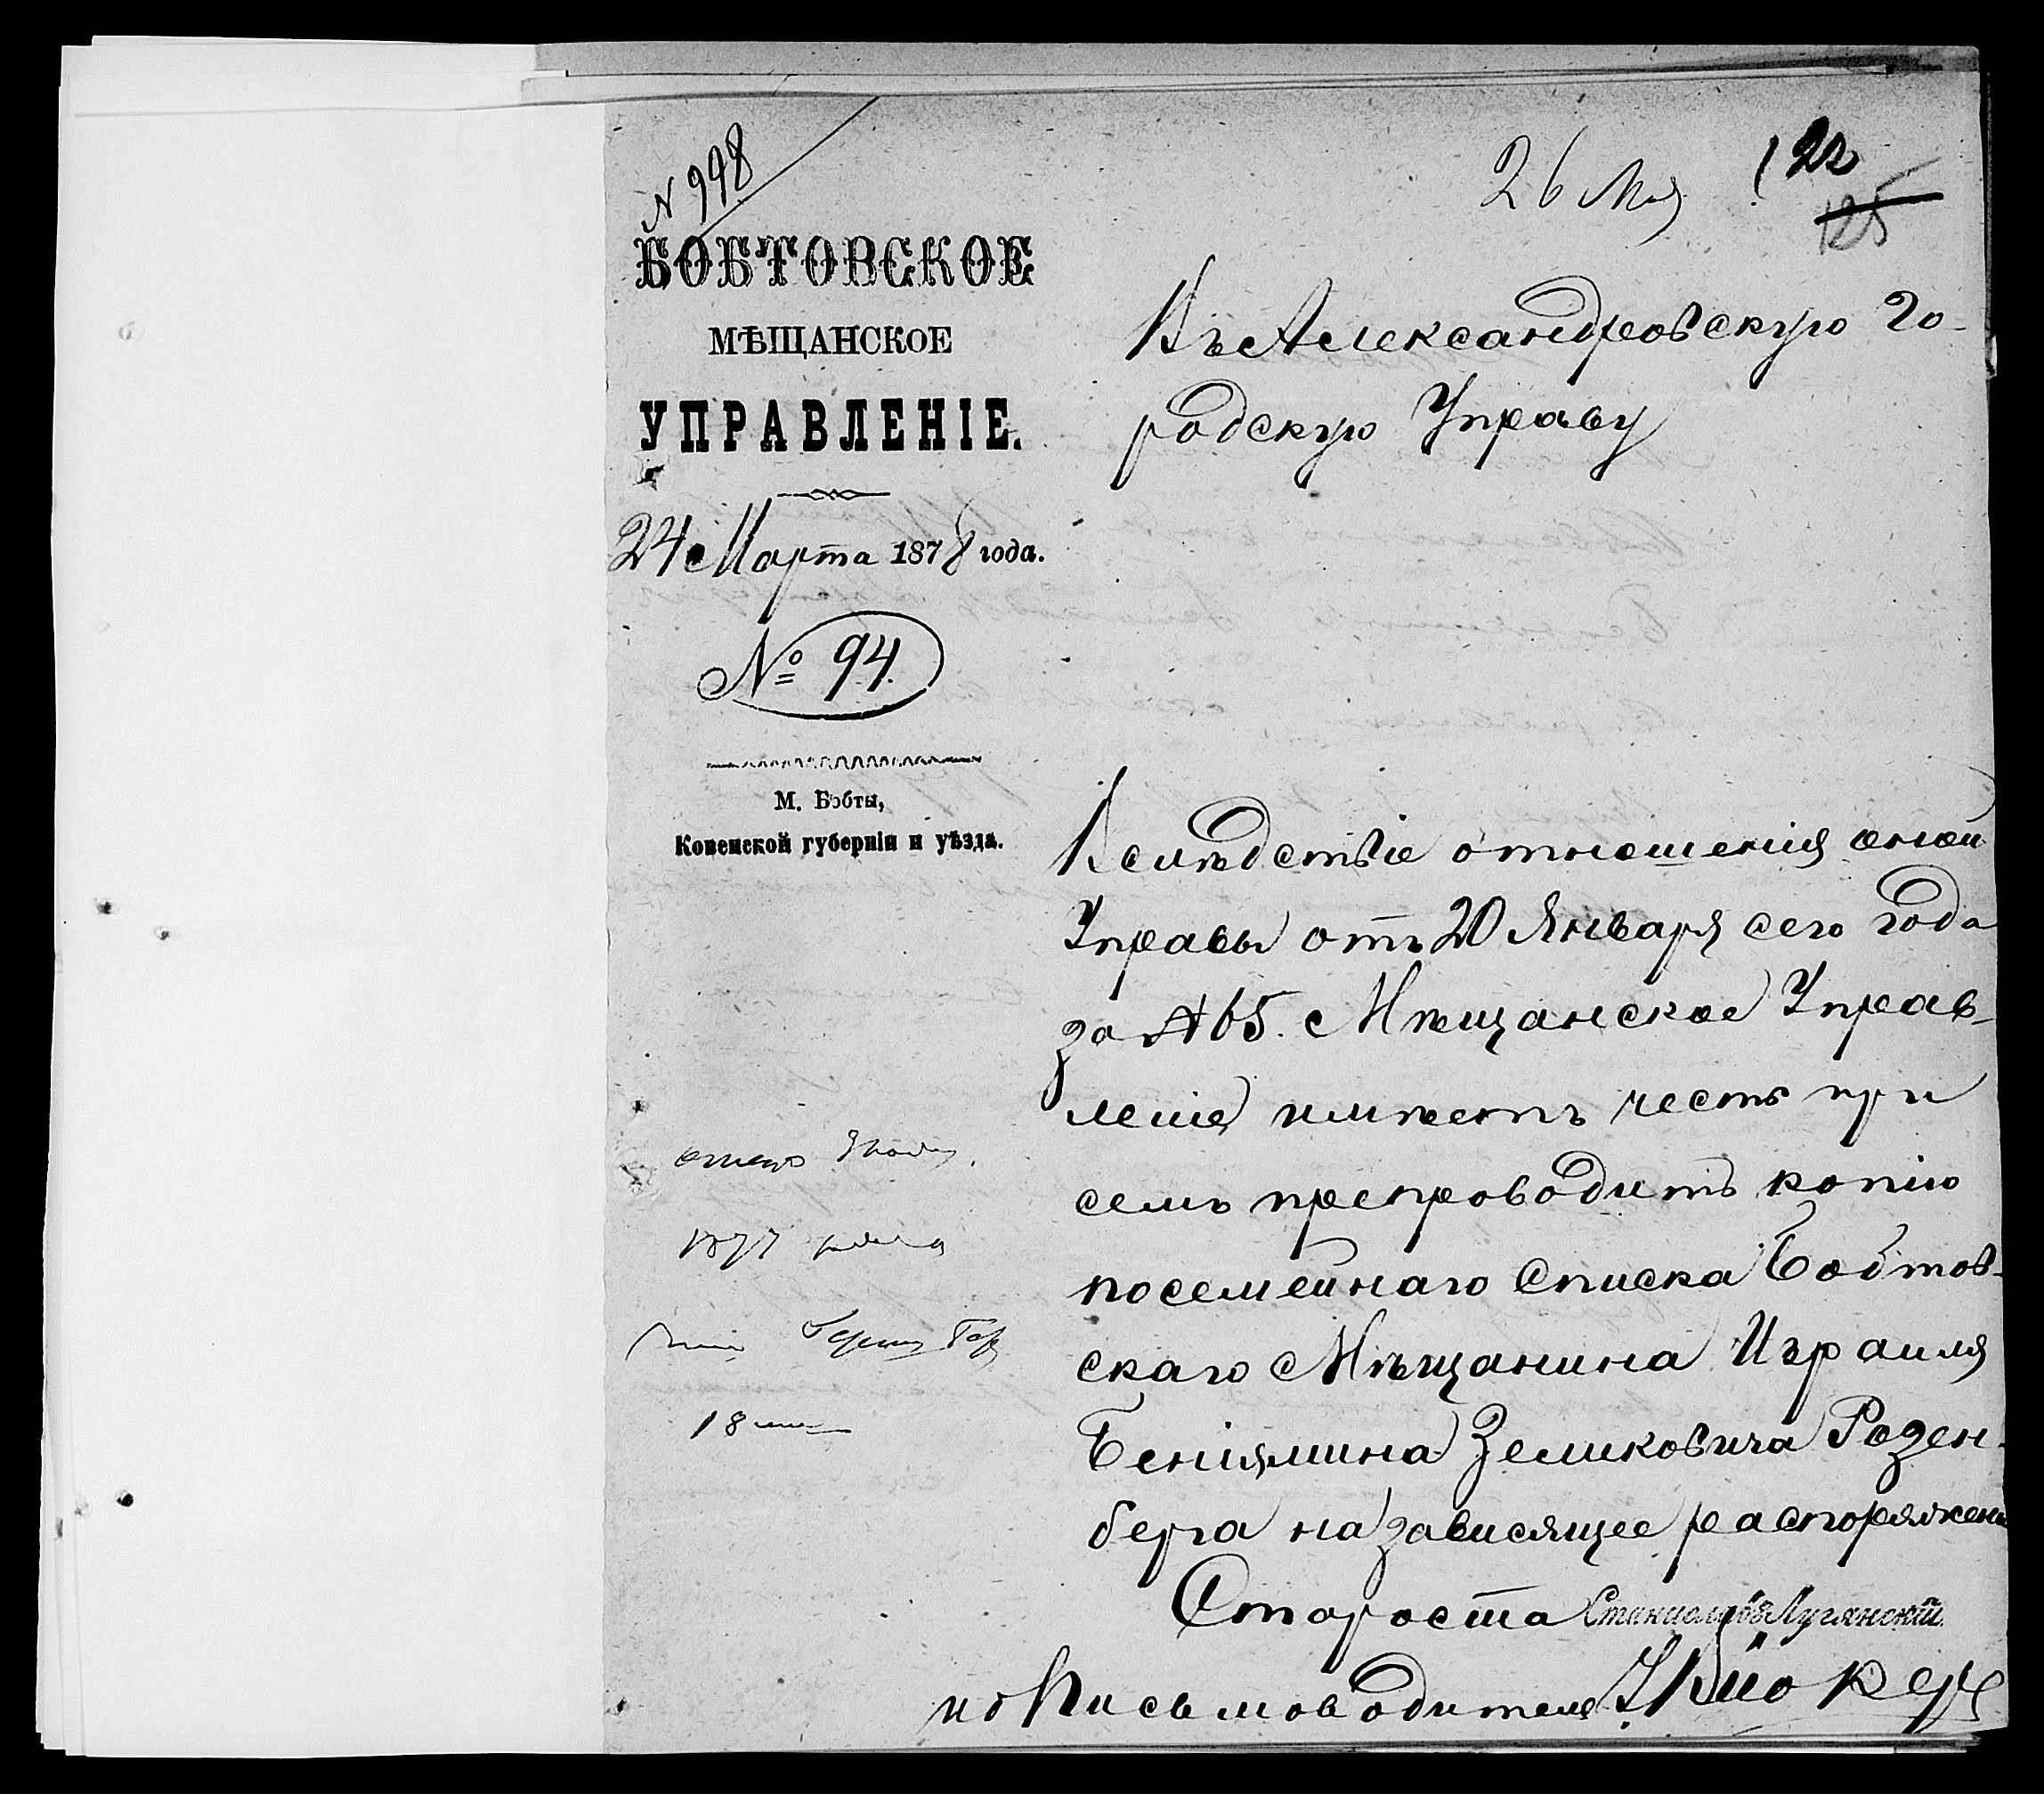 N 998
26 Мая
122
125
БОБТОВСКОЕ
МѢЩАНСКОЕ
УПРАВЛЕНІЕ.
24 Марта 1878 года.
№ 94.
М. Бобты,
Ковенской губерніи и уѣзда.
Въ Александровскую Го-
родскую Управу
Вслѣдствіе отношенія оной
Управы отъ 20 Января сего года
за № 65. Мѣщанское Управ-
леніе имѣетъ честь при
семъ препроводить копію
посемейнаго списка Бобтов-
скаго Мѣщанина Израиля
Беніямина Зеликовича Розен-
берга на зависящее распоряжені
Староста Станиславъ Лугянскій
и д Письмоводителя
1877
18